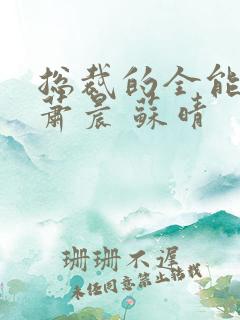 总裁的全能
萧晨 苏晴
珊珊不迟
未经同意禁止转载